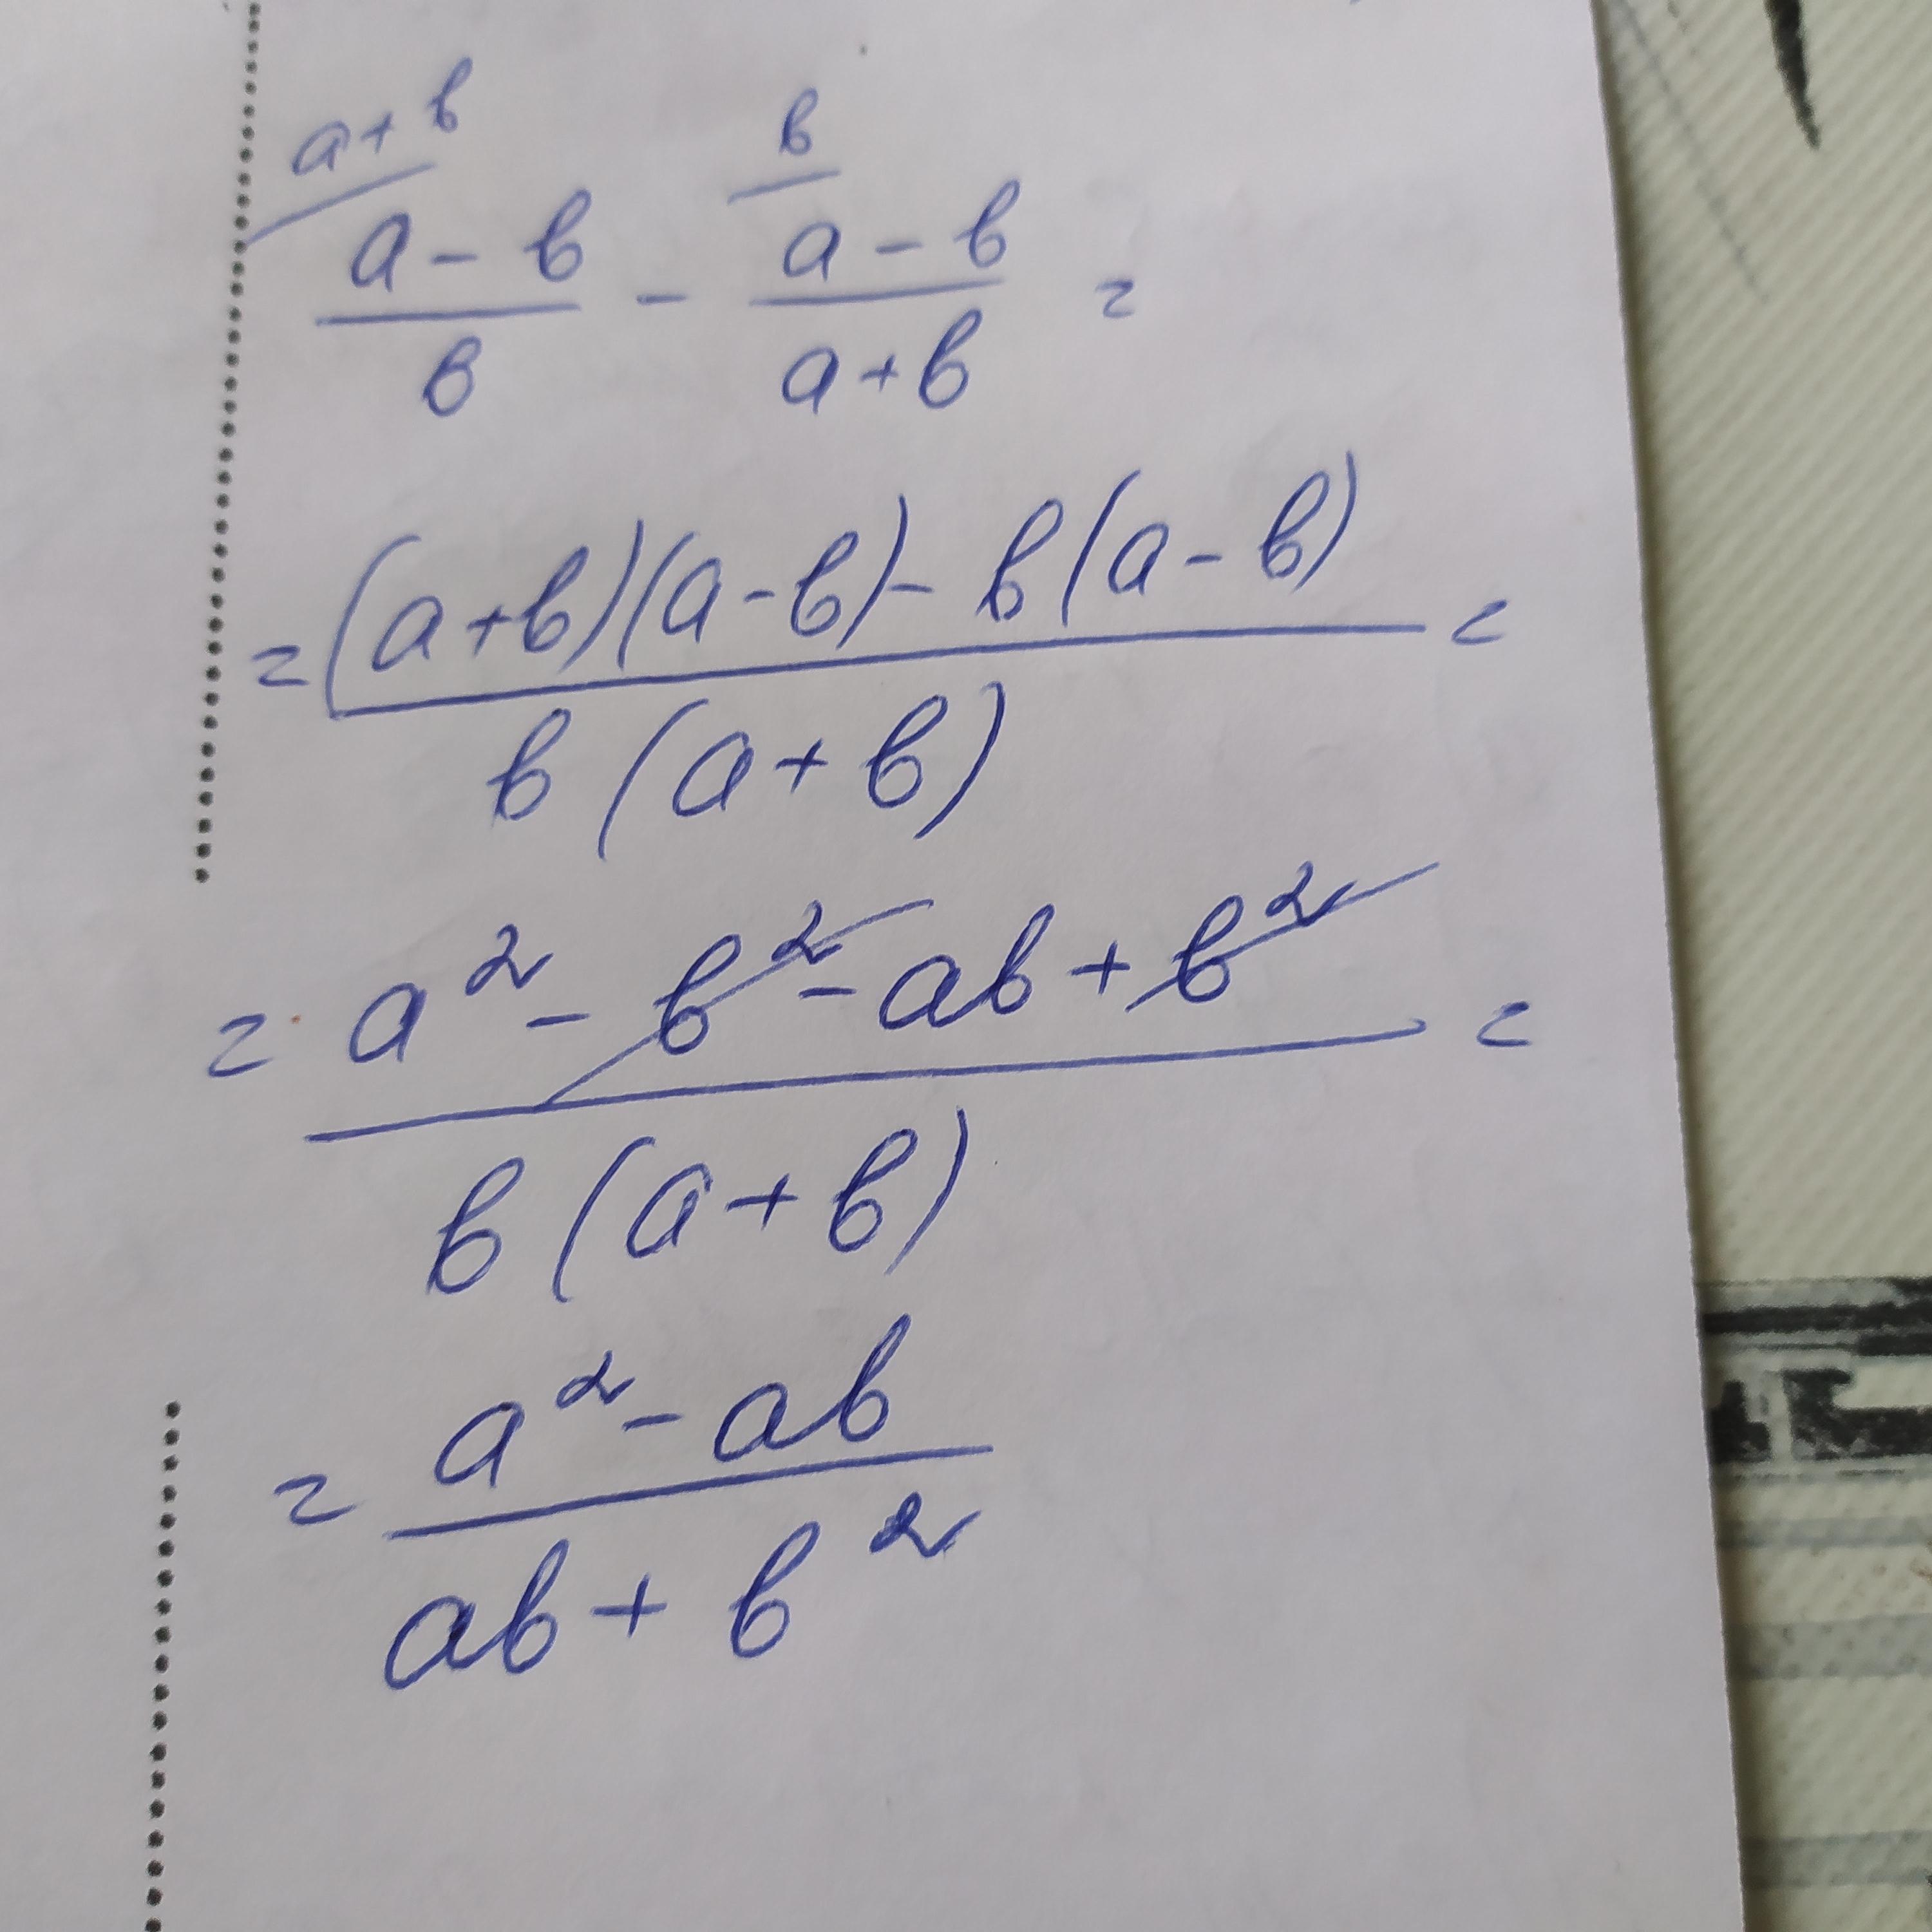 a+b b
a - b / b - a - b / a+b =
= (a+b)(a-b) - b(a-b) / b(a+b) =
= a² - b² - ab + b² / b(a+b) =
= a² - ab / ab + b²